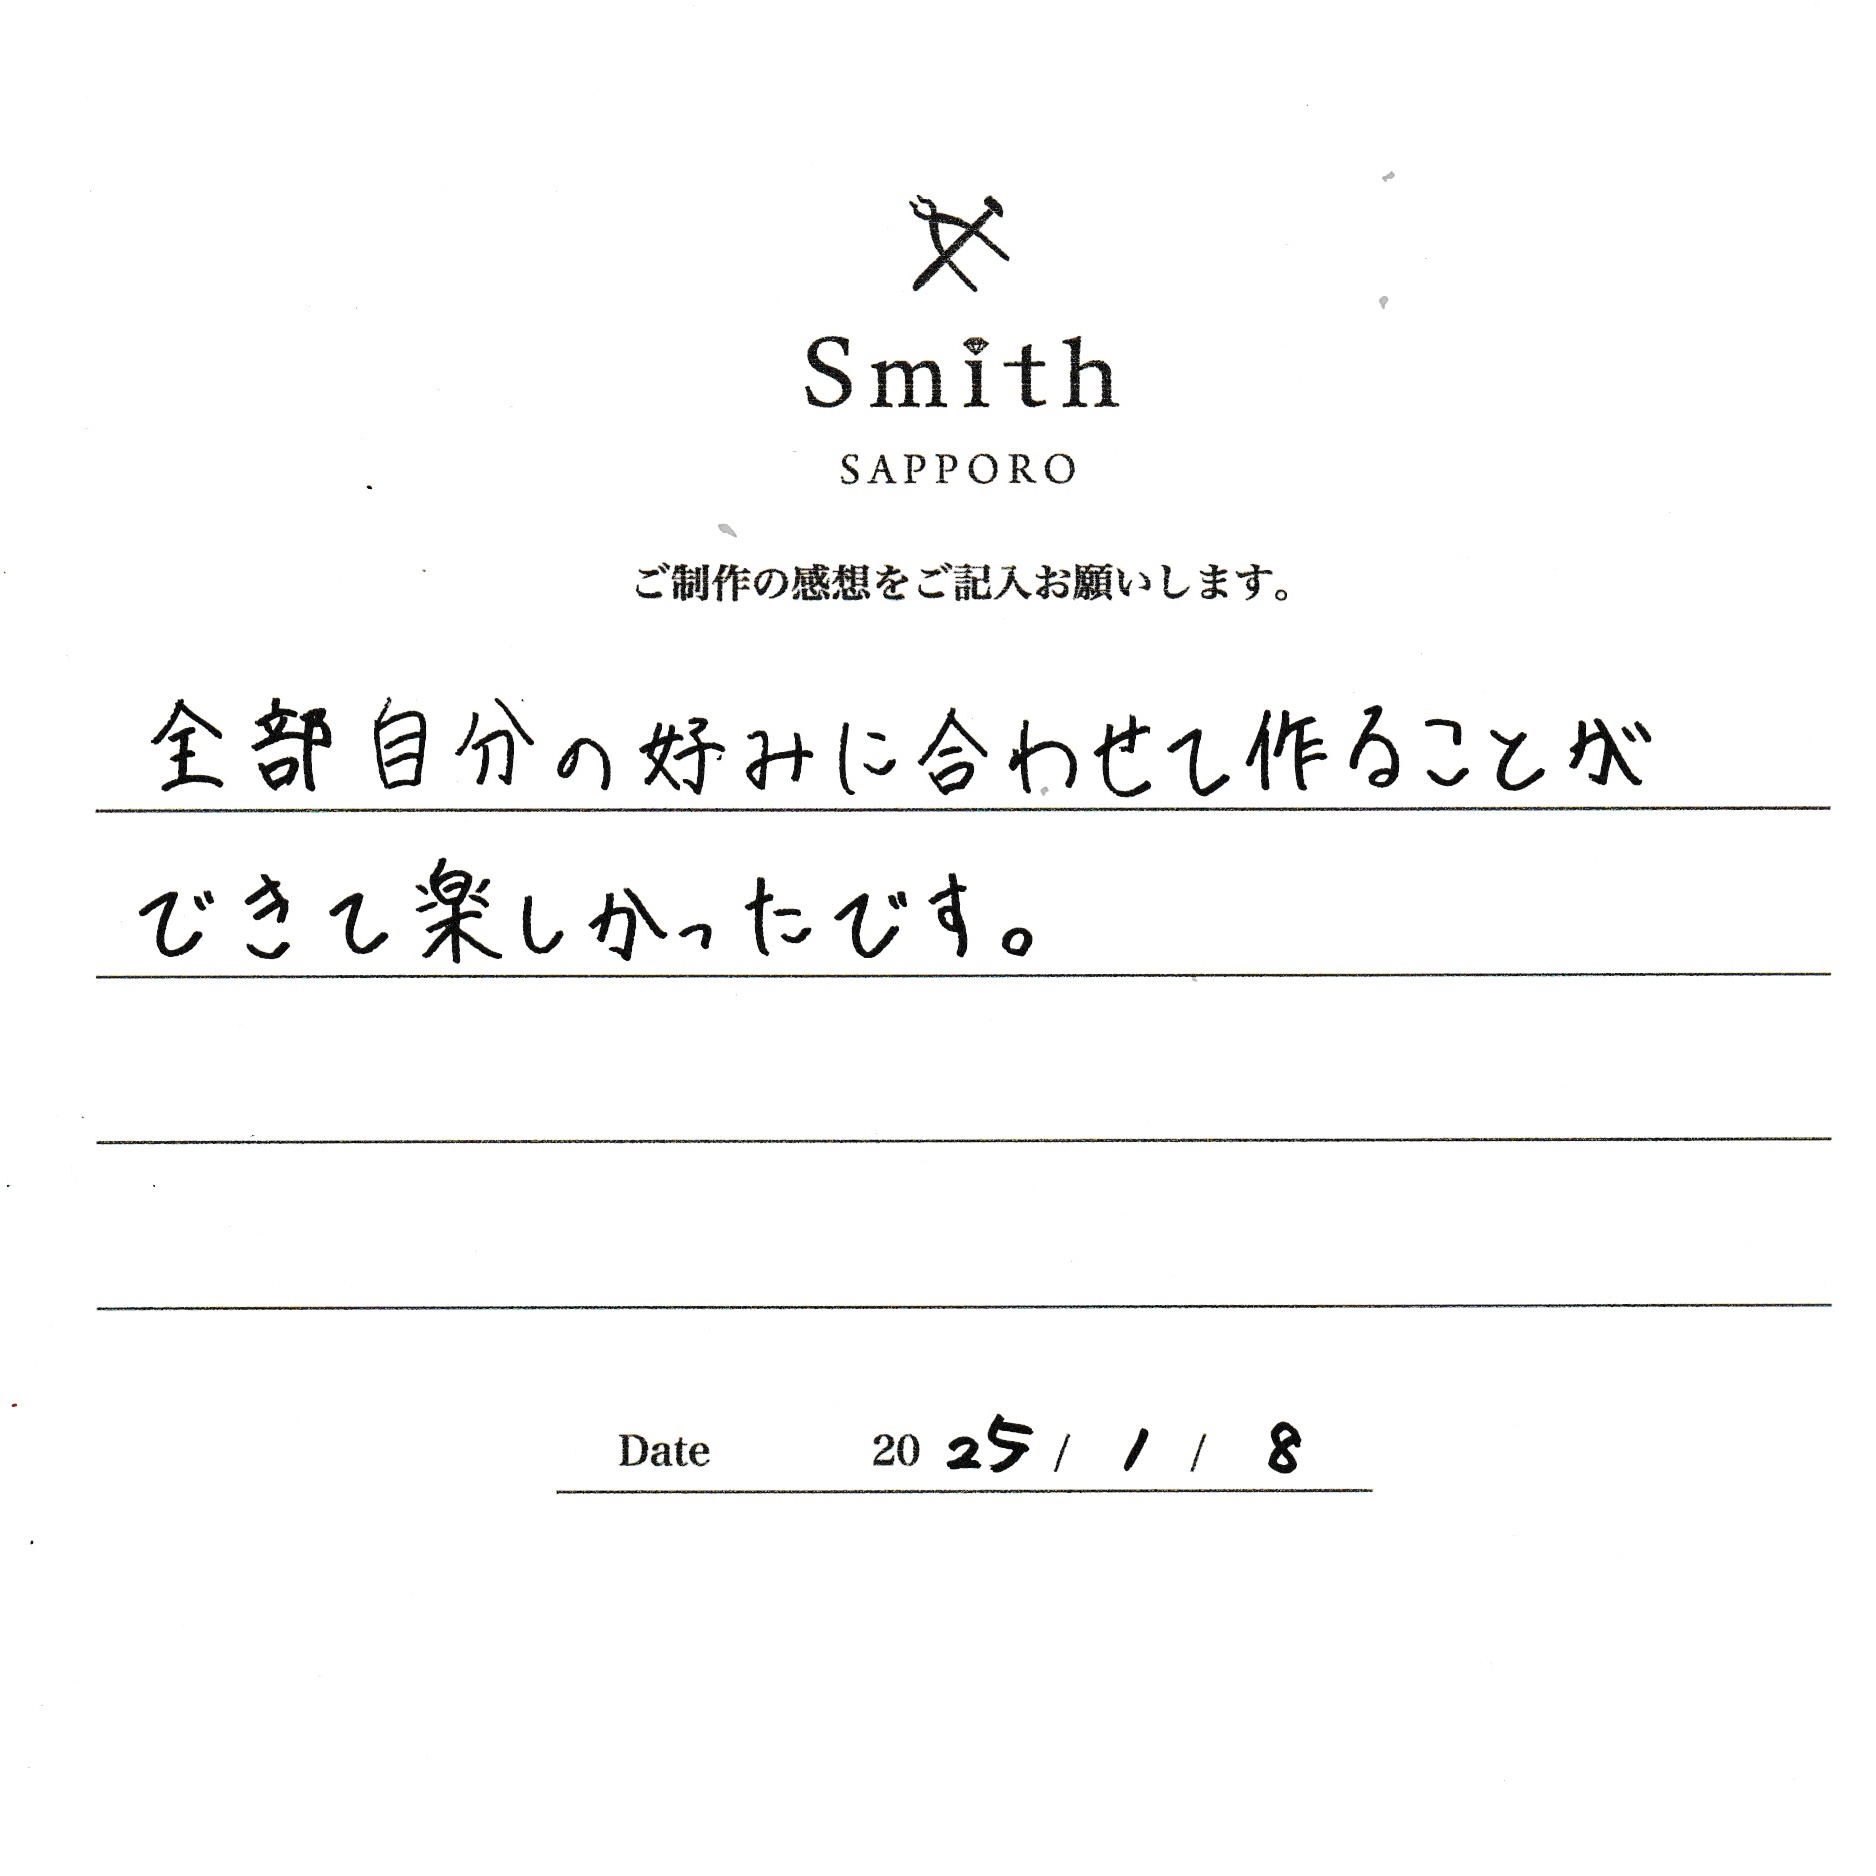 Smith
SAPPORO
ご制作の感想をご記入お願いします。
全部自分の好みに合わせて作ることが
できて楽しかったです。
Date 2025/1/8